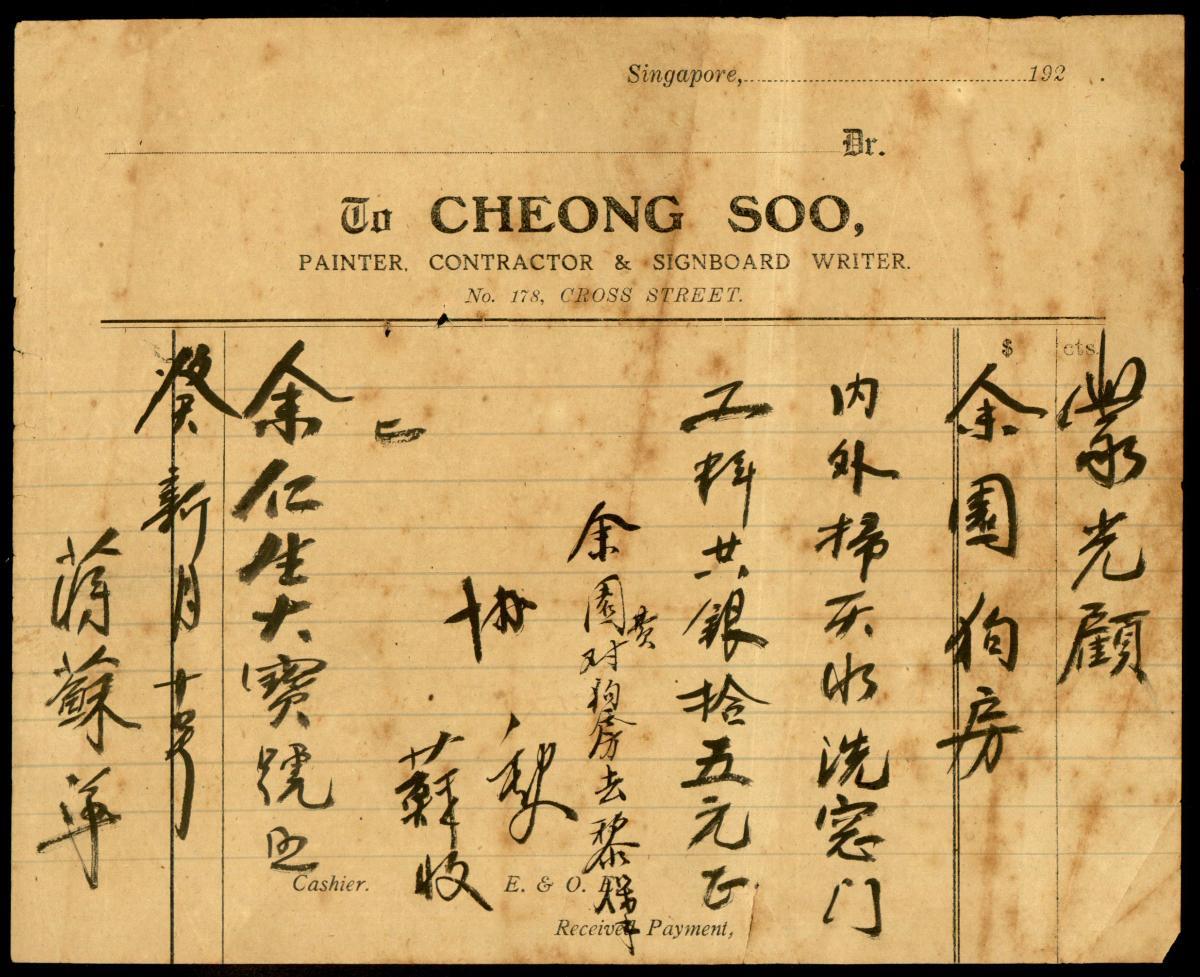 Singapore, 192 .
Dr.
To CHEONG SOO,
PAINTER, CONTRACTOR & SIGNBOARD WRITER.
No. 178, CROSS STREET.
$ cts.
蒙光顧
余園狗房
内外掃灰水洗窓门
工料共銀拾五元正
余園对狗房去
協
蘇收
余仁生大寶號
癸 新月十号
蘇单
Cashier.
E. & O. E.
Received Payment,